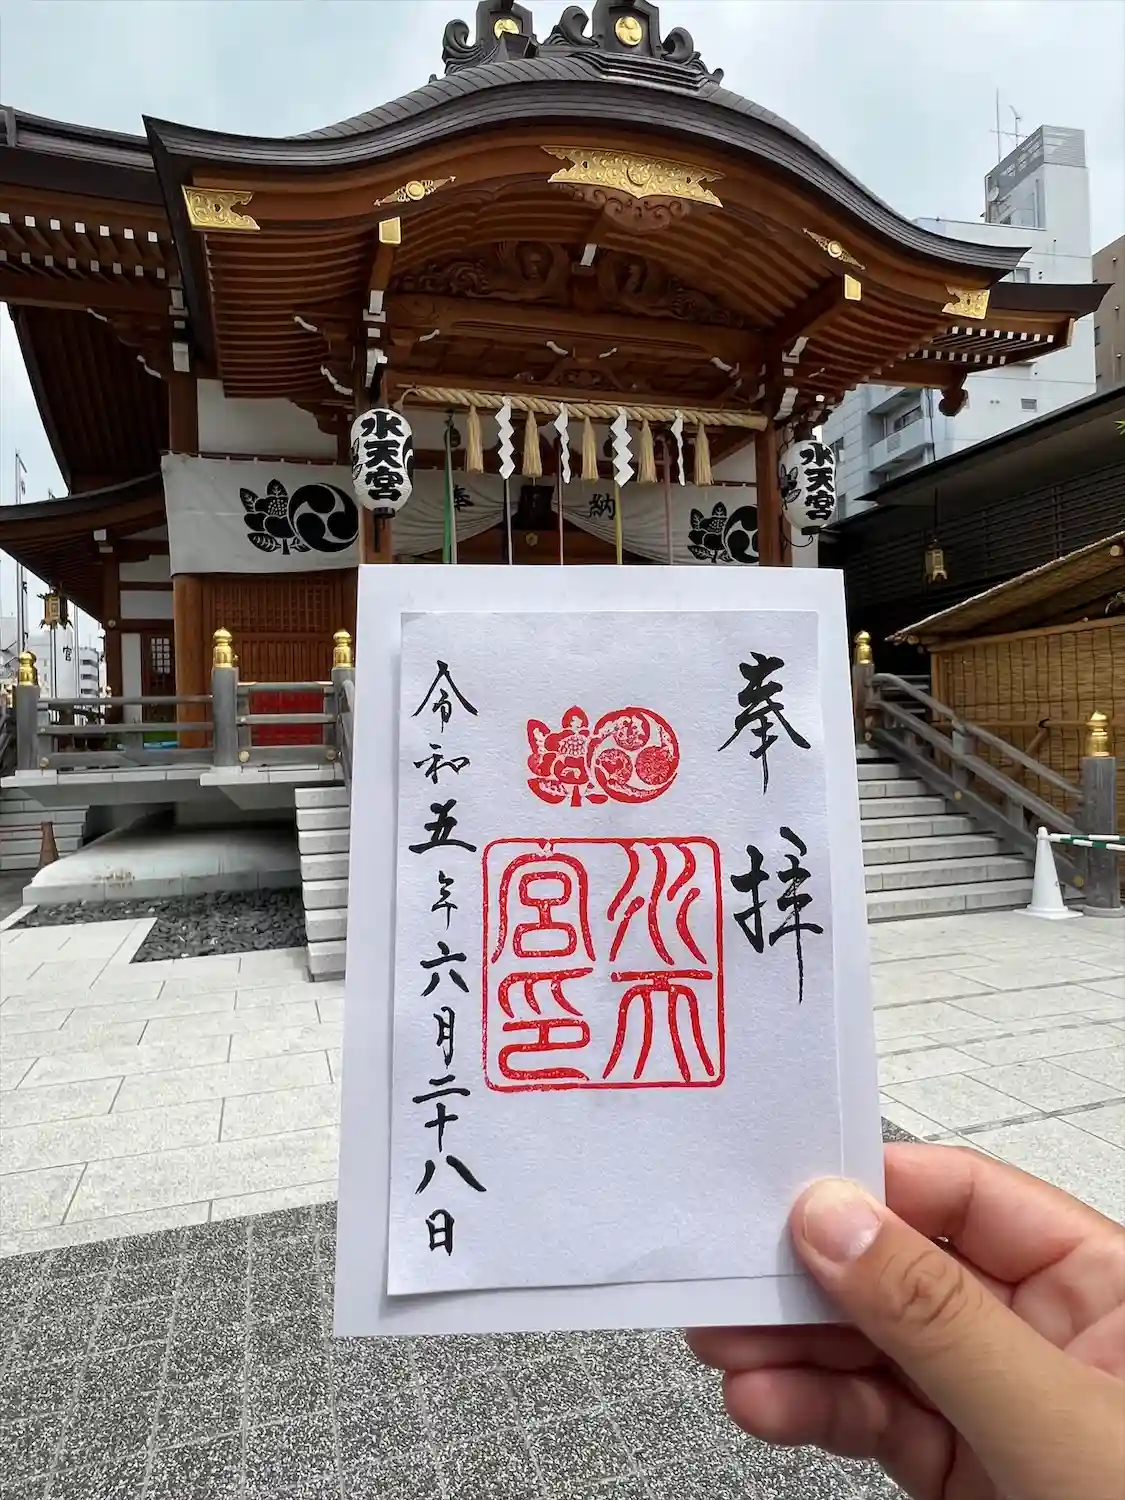 水天宮
水天宮
奉
納
宮
奉拝
水天
宮印
令和五年六月二十八日